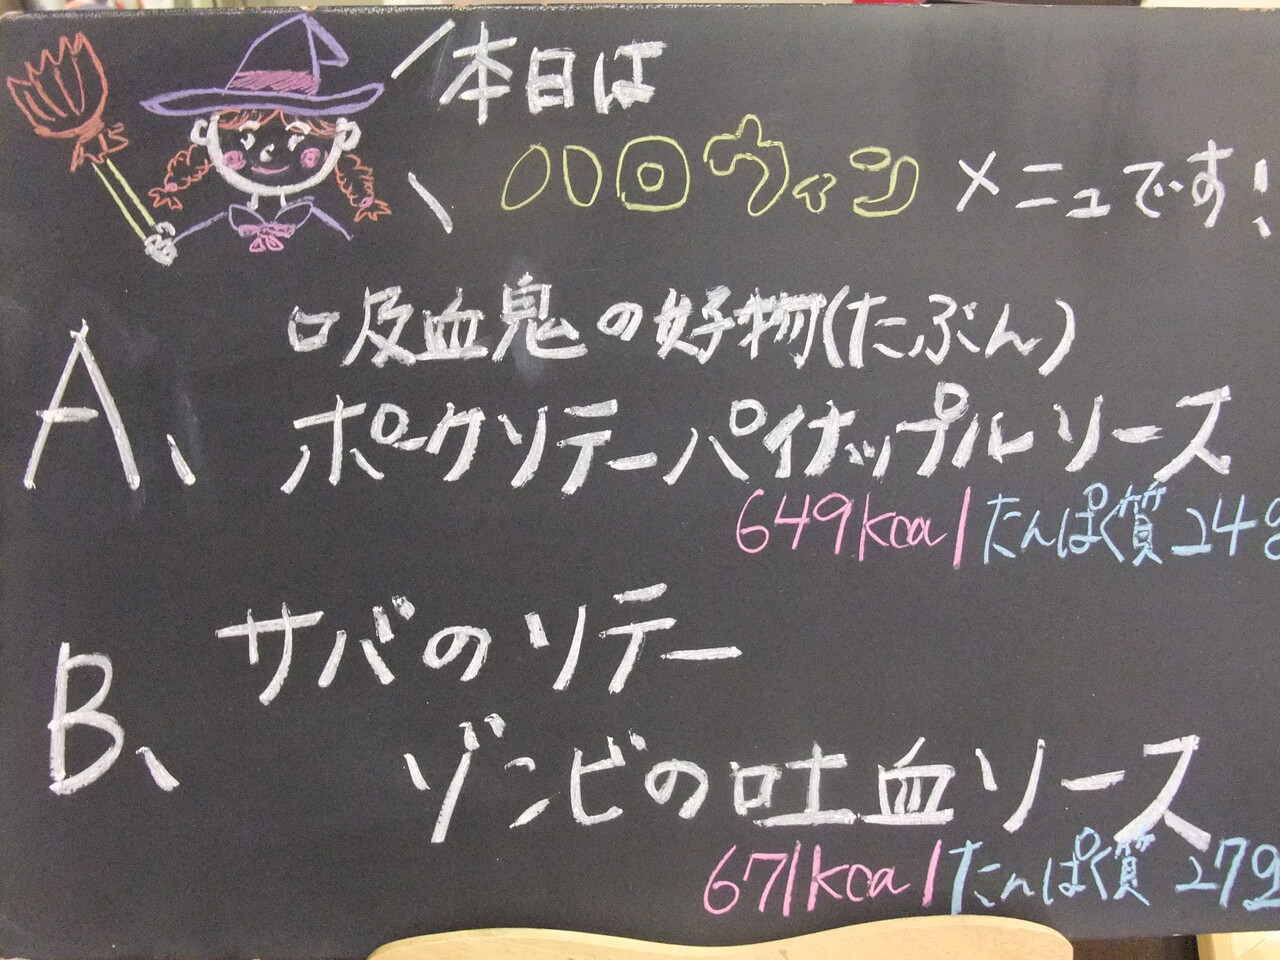 本日は
ハロウィン メニューです!
A、 吸血鬼の好物(たぶん)
ポークソテーパイナップルソース
649kcal たんぱく質 24g
B、 サバのソテー
ゾンビの吐血ソース
671kcal たんぱく質 27g